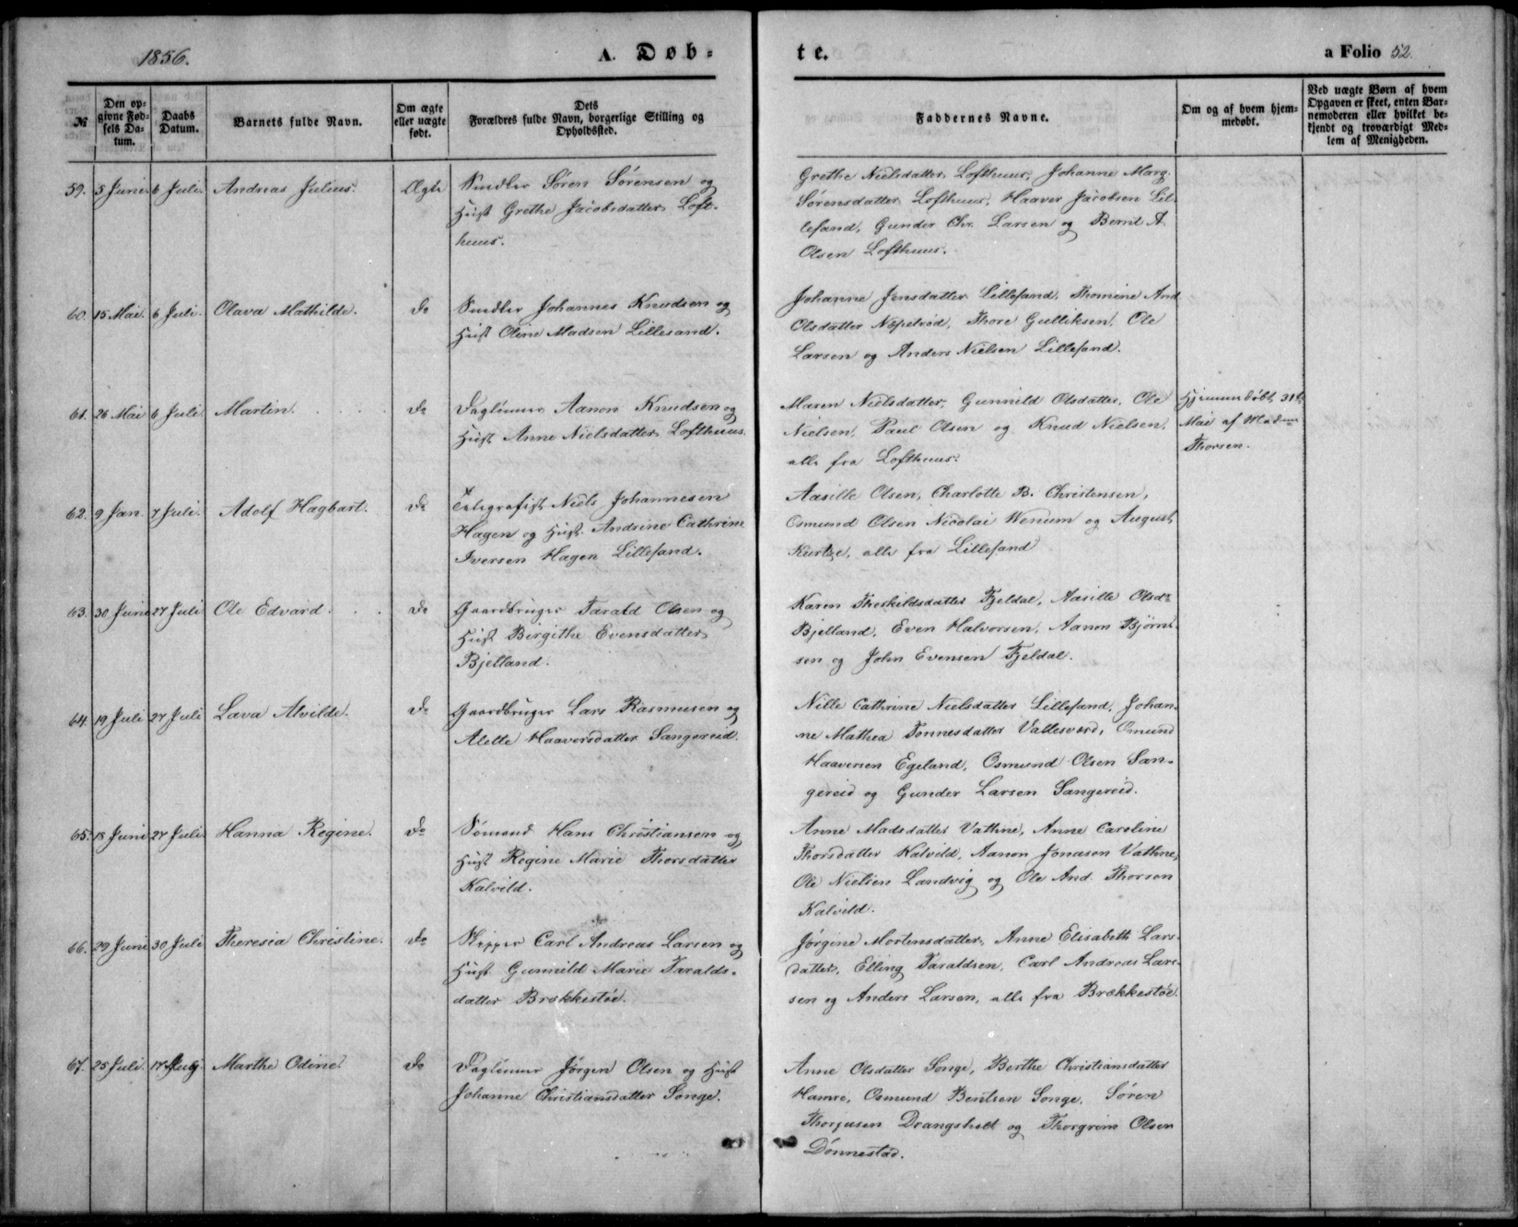 1856.
A. Døb-
te.
a Folio 52.
№
Den opgivne Fødsels Datum.
Daabs Datum.
Barnets fulde Navn.
Om ægte eller uægte født.
Dets Forældres fulde Navn, borgerlige Stilling og Opholdssted.
Faddernes Navne.
Om og af hvem hjemmedøbt.
Ved uægte Børn af hvem Opgaven er skeet, enten Barnemoderen eller hvilket bekjendt og troværdigt Medlem af Menigheden.
59. 5 Juni. 6 Juli. Andreas Julius. Ægte
Snedker Søren Sørensen og
Hust Grethe Jacobsdatter Loft-
huus.
Grethe Nielsdatter Lofthuus, Johanne Marg.
Sørensdatter Lofthuus, Haaver Jacobsen Lil-
lesand, Gunder Chr. Larsen og Bernt A.
Olsen Lofthuus.
60. 15 Mai. 6 Juli. Olava Mathilde. do
Snedker Johannes Knudsen og
Hust Oline Madsen Lillesand.
Johanne Jensdatter Lillesand, Thomine And
Olsdatter Nøpetrød, Thore Gulliksen, Ole
Larsen og Anders Nielsen Lillesand.
61. 26 Mai 6 Juli. Martin. do
Daglønner Aanon Knudsen og
Hust Anne Nielsdatter Lofthuus.
Maren Nielsdatter, Gunnild Olsdatter, Ole
Nielsen, Paul Olsen og Knud Nielsen,
alle fra Lofthuus.
Hjemmedøbt 31te
Mai af Madme
Thorsen.
62. 9 Jan. 7 Juli. Adolf Hagbart. do
Telegrafist Niels Johannesen
Hagen og Hust. Andrine Cathrine
Iversen Hagen Lillesand.
Aasille Olsen, Charlotte B. Christensen,
Osmund Olsen Nicolai Wenum og August
Kurtze, alle fra Lillesand
63. 30 Juni 27 Juli Ole Edvard. do
Gaardbruger Tarald Olsen og
Hust Birgithe Evensdatter
Bjelland.
Karen Therkildsdatter Fjeldal, Aasille Olsdr
Bjelland, Even Halvorsen, Aanon Bjørn-
sen og John Evensen Fjeldal.
64. 19 Juli 27 Juli Lava Alvilde. do
Gaardbruger Lars Rasmusen og
Alette Haaversdatter Sangereid.
Nille Cathrine Nielsdatter Lillesand, Johan-
ne Mathea Tønnesdatter Vallesværd, Osmund
Haaversen Egeland, Osmund Olsen San-
gereid og Gunder Larsen Sangereid.
65. 18 Juni 27 Juli. Hanna Regine. do
Sømand Hans Christiansen og
Hust Regine Marie Thorsdatter
Kalvild.
Anne Madsdatter Vathne, Anne Caroline
Thorsdatter Kalvild, Aanon Jonasen Vathne,
Ole Nielsen Landvig og Ole And. Thorsen
Kalvild.
66. 29 Juni 30 Juli Theresia Christine. do
Skipper Carl Andreas Larsen og
Hust Gunnild Marie Taralds-
datter Brækkestøe.
Jørgine Mortensdatter, Anne Elisabeth Lars-
datter, Elling Taraldsen, Carl Andreas Lar-
sen og Anders Larsen, alle fra Brækkestøe.
67. 25 Juli. 17 Aug. Marthe Odine. do
Daglønner Jørgen Olsen og Hust
Johanne Christiansdatter Songe.
Anne Olsdatter Songe, Berthe Christiansdatter
Hamre, Osmund Bentsen Songe, Søren
Thorjusen Drangsholt og Thorgrim Olsen
Dønnestad.